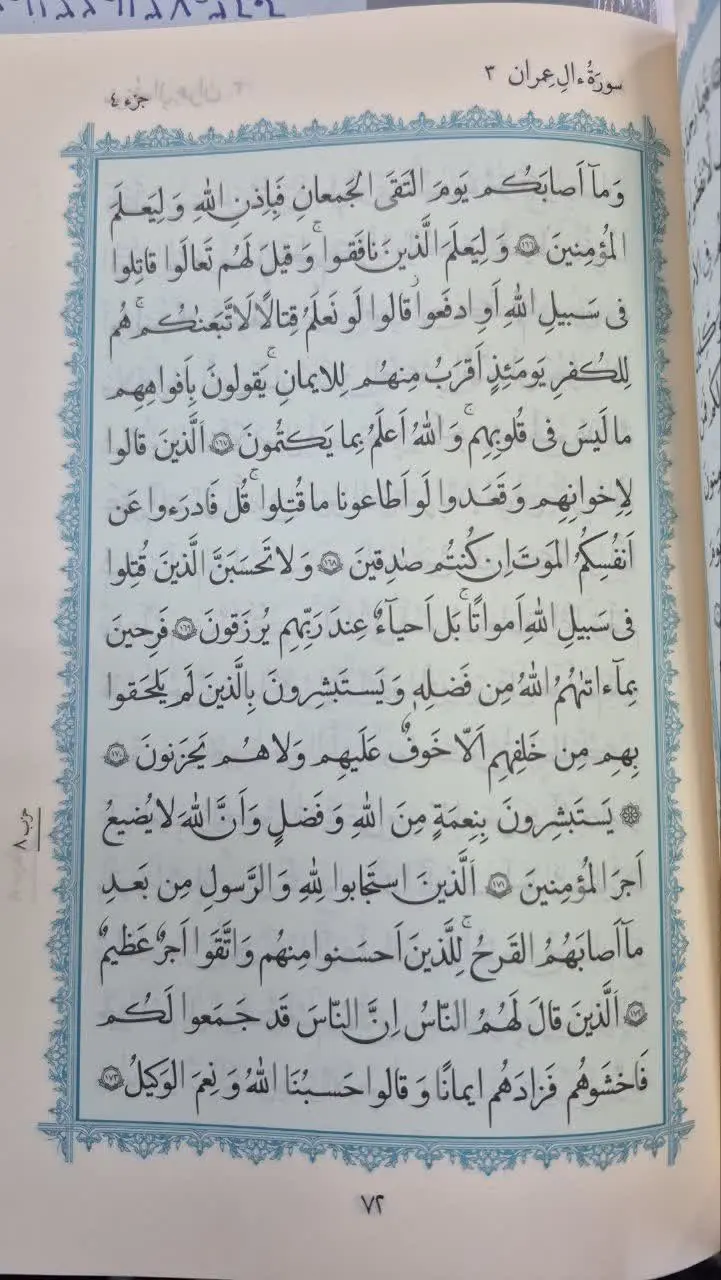 سورَةُ ءالِ عِمران ٣
جزء ٤
وَمآ اَصابَكُم يَومَ التَقَى الجَمعانِ فَبِاِذنِ اللهِ وَ لِيَعلَمَ
المُؤمِنينَ ١٦٦ وَ لِيَعلَمَ الَّذينَ نافَقوا ۚ وَ قيلَ لَهُم تَعالَوا قاتِلوا
فى سَبيلِ اللهِ اَوِ ادفَعوا ۖ قالوا لَو نَعلَمُ قِتالًا لَاتَّبَعنٰكُم ۗ هُم
لِلكُفرِ يَومَئِذٍ اَقرَبُ مِنهُم لِلايمانِ ۚ يَقولونَ بِاَفواهِهِم
ما لَيسَ فى قُلوبِهِم ۗ وَ اللهُ اَعلَمُ بِما يَكتُمونَ ١٦٧ اَلَّذينَ قالوا
لِاِخوانِهِم وَ قَعَدوا لَو اَطاعونا ما قُتِلوا ۗ قُل فَادرَءوا عَن
اَنفُسِكُمُ المَوتَ اِن كُنتُم صٰدِقينَ ١٦٨ وَ لا تَحسَبَنَّ الَّذينَ قُتِلوا
فى سَبيلِ اللهِ اَمواتًا ۚ بَل اَحيآءٌ عِندَ رَبِّهِم يُرزَقونَ ١٦٩ فَرِحينَ
بِمآ ءاتىٰهُمُ اللهُ مِن فَضلِهٖ وَ يَستَبشِرونَ بِالَّذينَ لَم يَلحَقوا
بِهِم مِن خَلفِهِم اَلّا خَوفٌ عَلَيهِم وَلا هُم يَحزَنونَ ١٧٠
۞ يَستَبشِرونَ بِنِعمَةٍ مِنَ اللهِ وَ فَضلٍ وَ اَنَّ اللهَ لا يُضيعُ
اَجرَ المُؤمِنينَ ١٧١ اَلَّذينَ استَجابوا لِلّٰهِ وَ الرَّسولِ مِن بَعدِ
مآ اَصابَهُمُ القَرحُ ۚ لِلَّذينَ اَحسَنوا مِنهُم وَ اتَّقَوا اَجرٌ عَظيمٌ
١٧٢ اَلَّذينَ قالَ لَهُمُ النّاسُ اِنَّ النّاسَ قَد جَمَعوا لَكُم
فَاخشَوهُم فَزادَهُم ايمانًا وَ قالوا حَسبُنَا اللهُ وَ نِعمَ الوَكيلُ ١٧٣
حزب ٨
٧٢